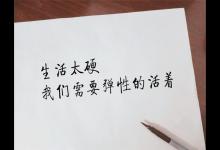 生活太硬
我们需要弹性的活着